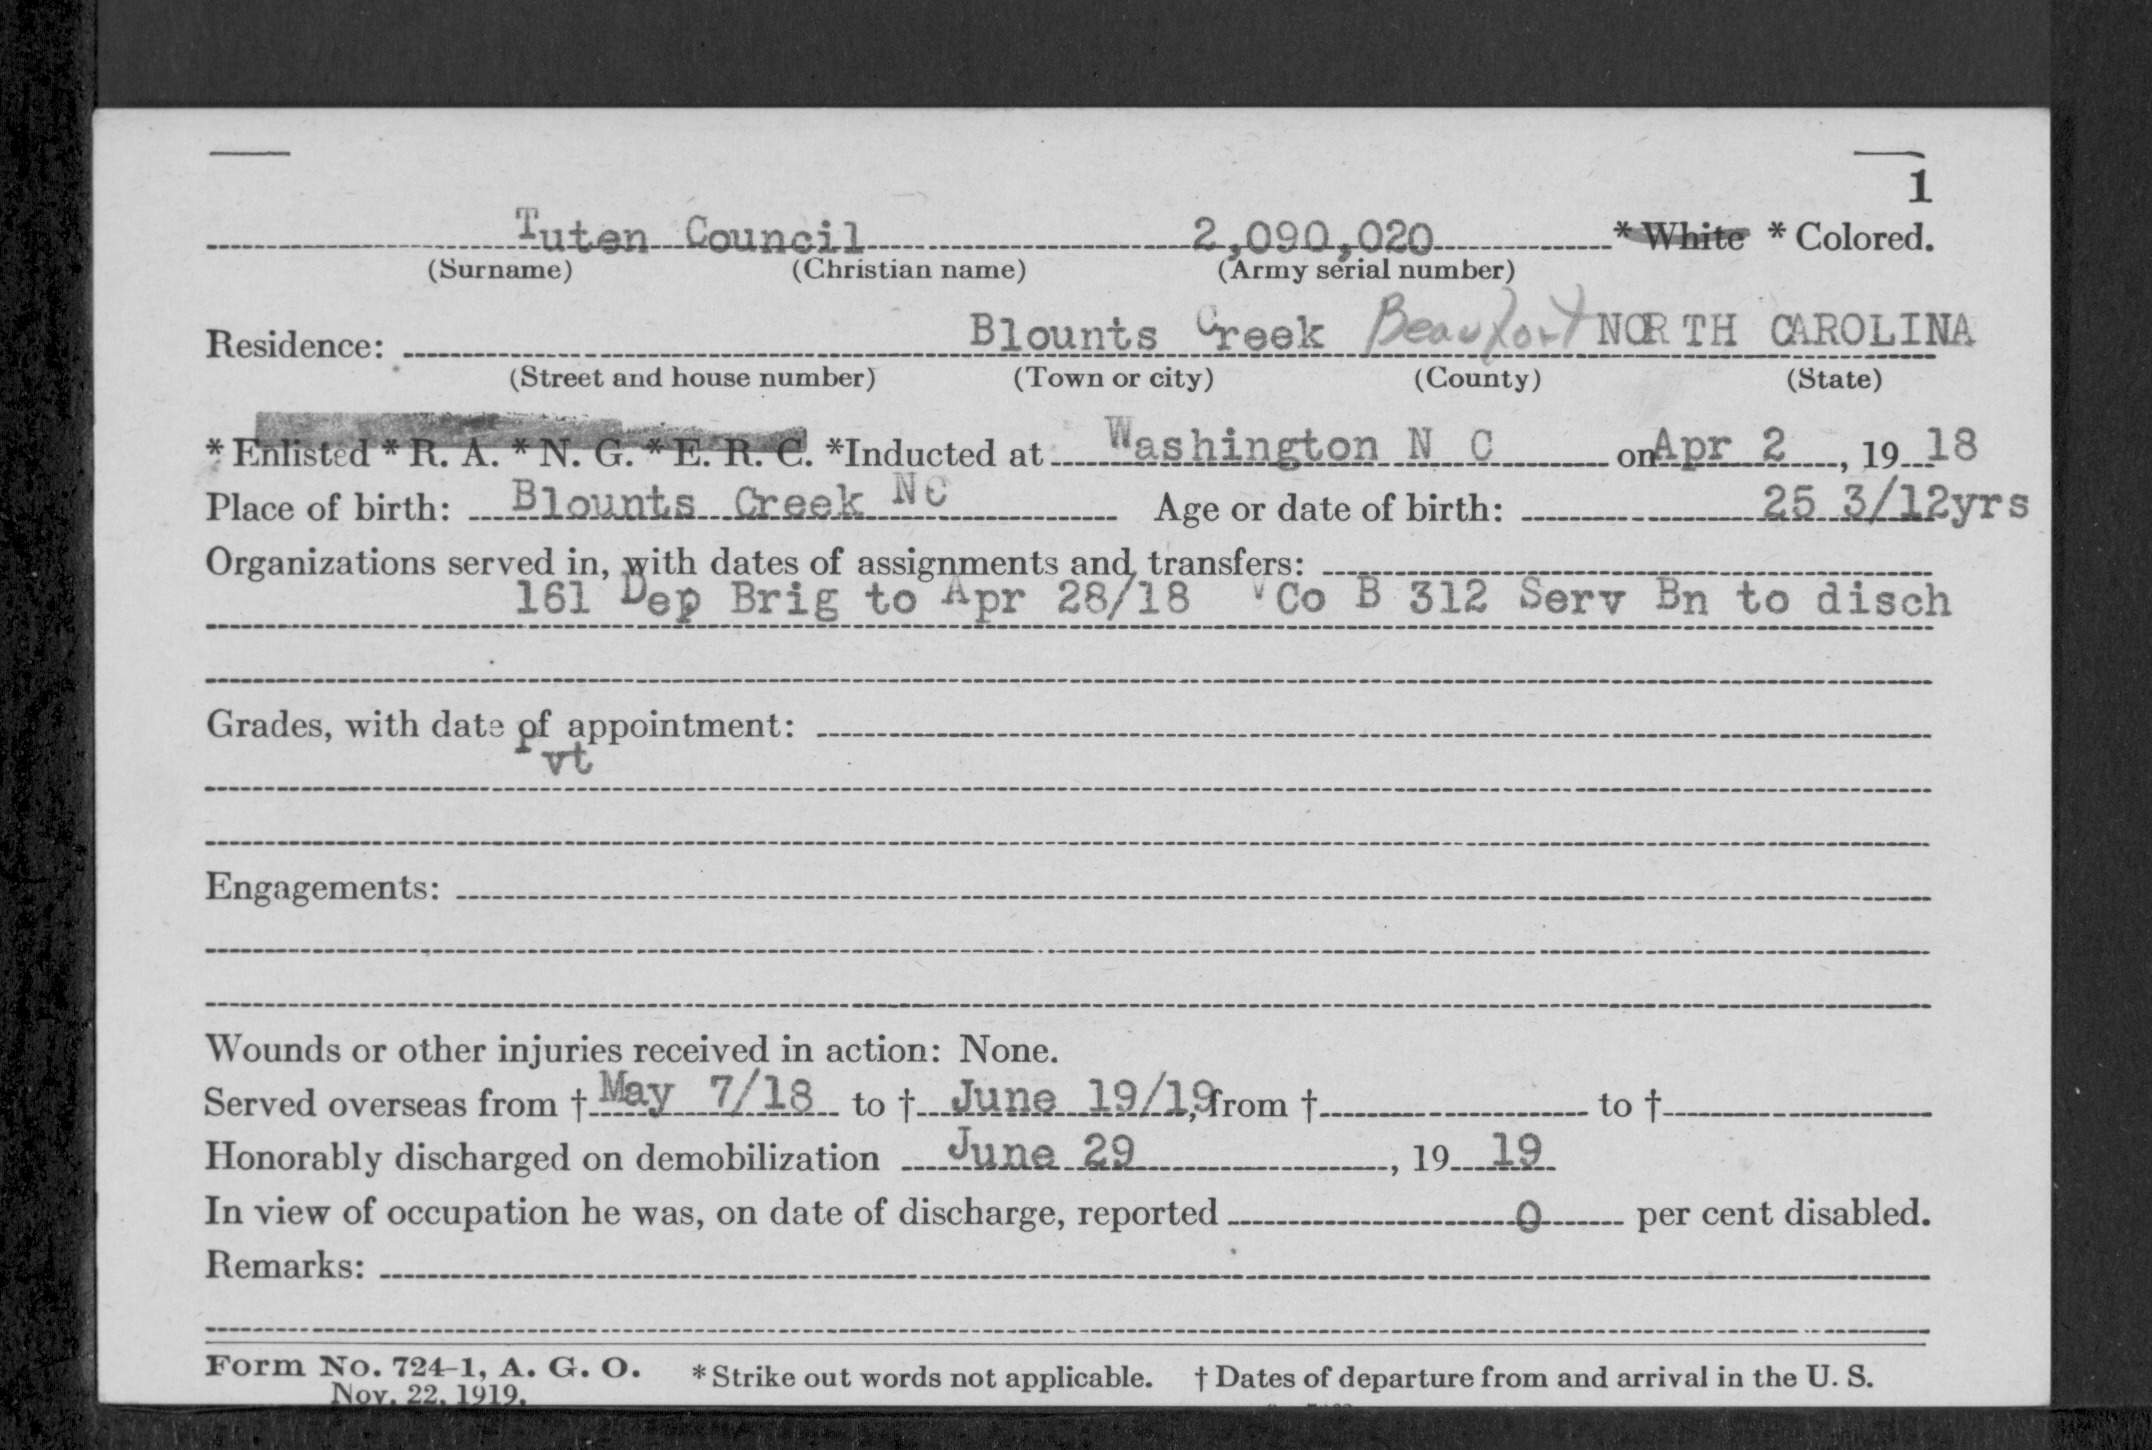 1
Tuten Council 2,090,020 * White * Colored.
(Surname) (Christian name) (Army serial number)
Residence: Blounts Creek Beaufort NORTH CAROLINA
(Street and house number) (Town or city) (County) (State)
* Enlisted * R. A. * N. G. * E. R. C. *Inducted at Washington N C on Apr 2, 19 18
Place of birth: Blounts Creek NC Age or date of birth: 25 3/12yrs
Organizations served in, with dates of assignments and transfers:
161 Dep Brig to Apr 28/18 Co B 312 Serv Bn to disch
Grades, with date of appointment:
Pvt
Engagements:
Wounds or other injuries received in action: None.
Served overseas from † May 7/18 to † June 19/19, from † to †
Honorably discharged on demobilization June 29, 19 19
In view of occupation he was, on date of discharge, reported 0 per cent disabled.
Remarks:
Form No. 724-1, A. G. O. * Strike out words not applicable. † Dates of departure from and arrival in the U. S.
Nov. 22, 1919.